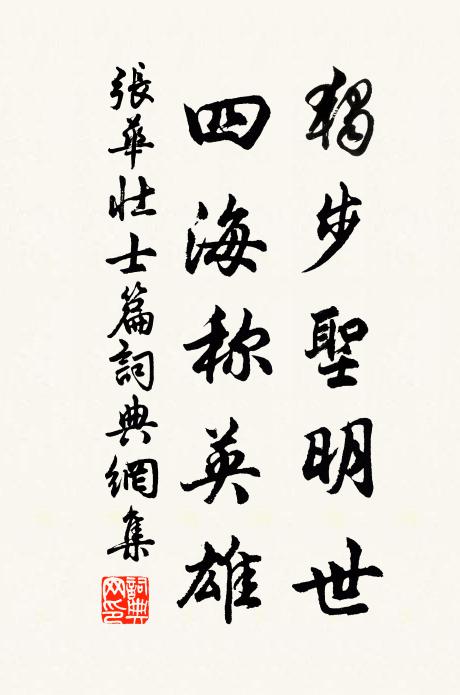 獨步聖明世
四海称英雄
張華壯士篇詞典網集
詞典网印